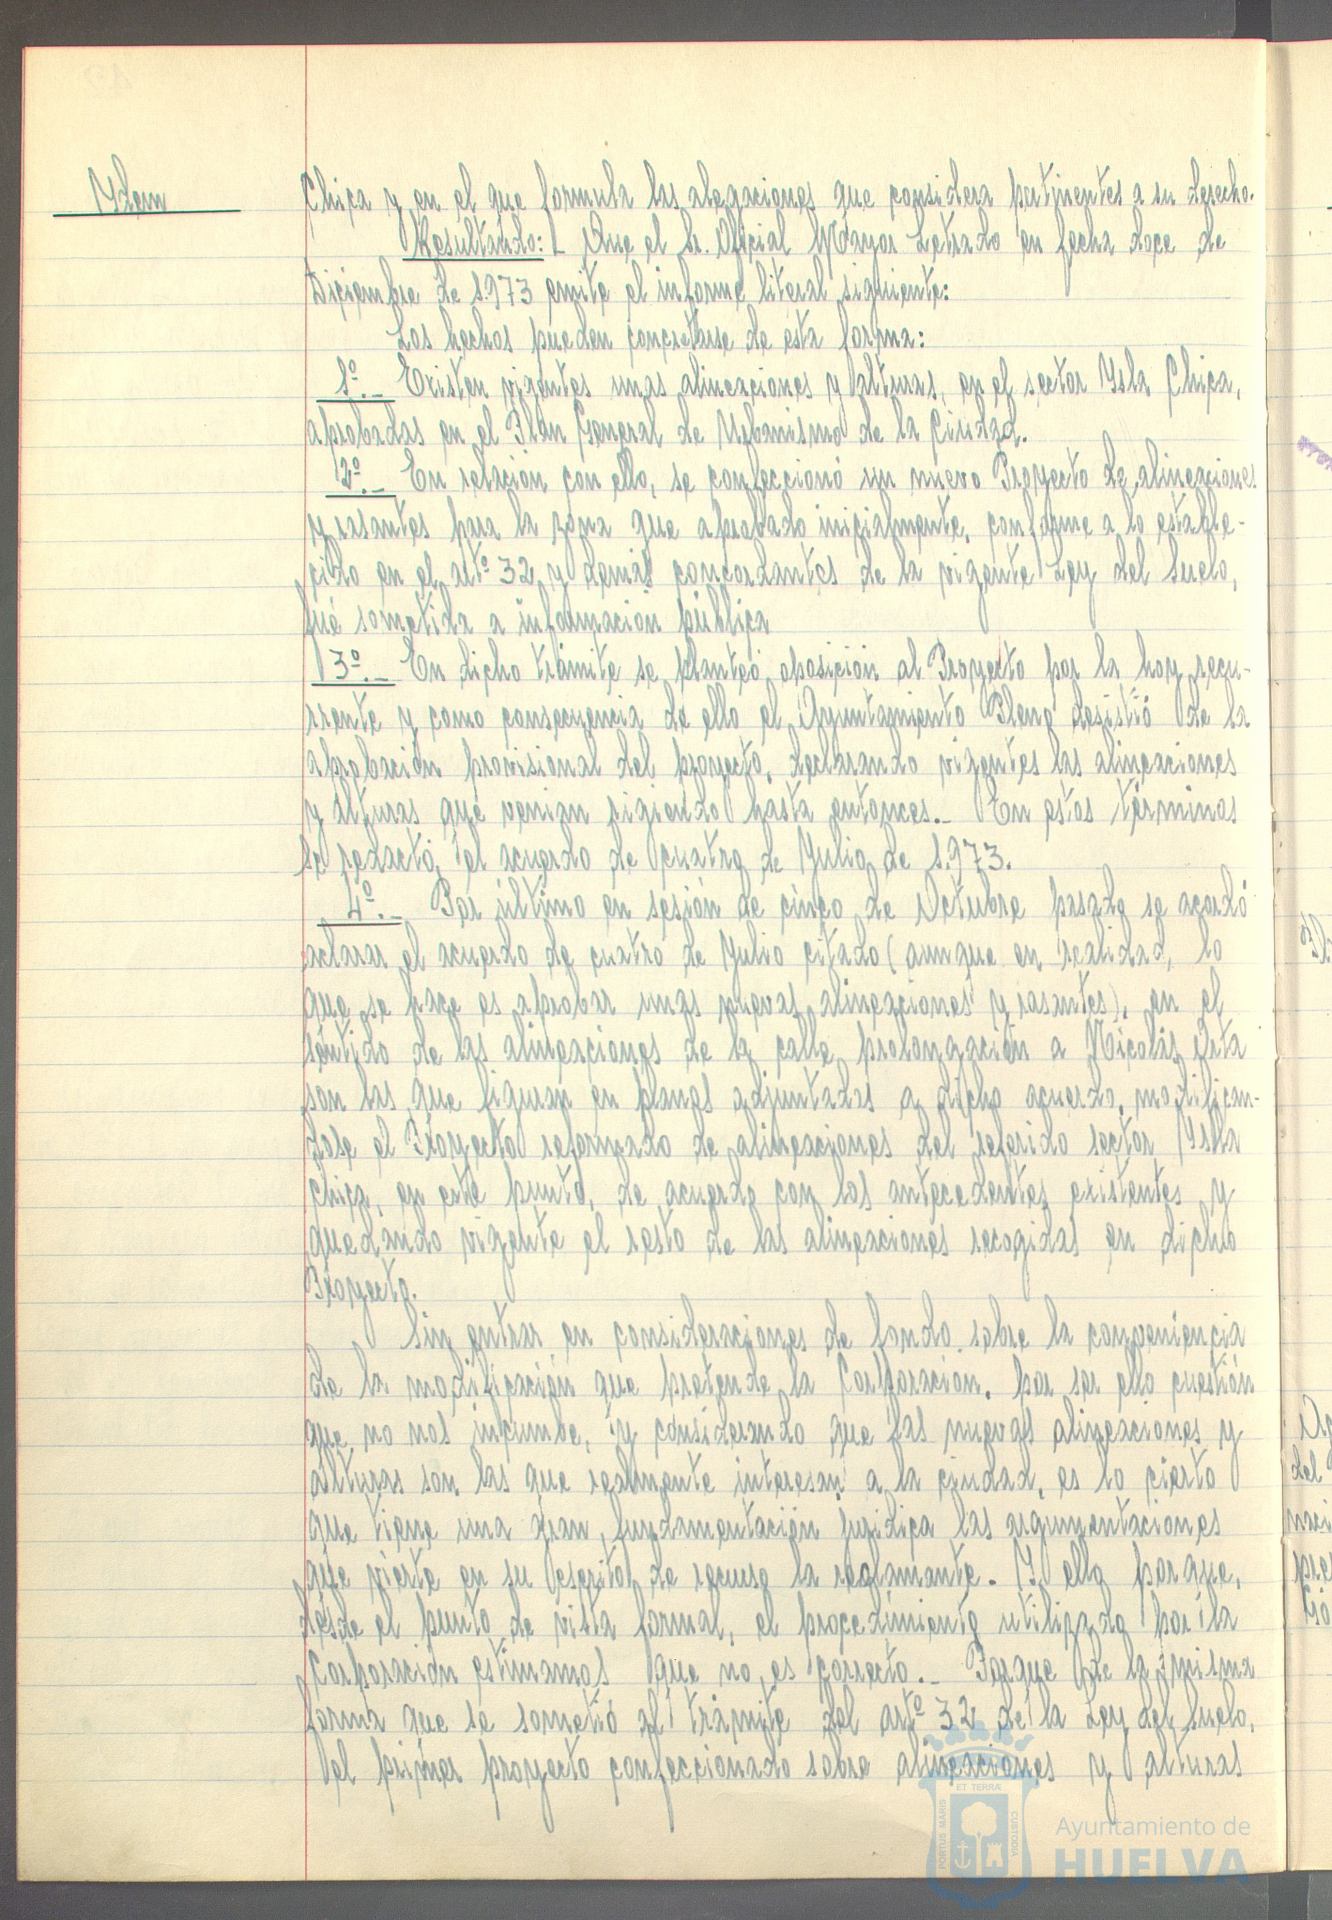 Ydem
Chica y en el que formula las alegaciones que considera pertinentes a su derecho.
Resultando: Que el Sr. Oficial Mayor Letrado en fecha doce de
Diciembre de 1.973 emite el informe literal siguiente:
Los hechos pueden concretarse de esta forma:
1º.- Existen vigentes unas alineaciones y alturas, en el sector Ysla Chica,
aprobadas en el Plan General de Urbanismo de la Ciudad.
2º.- En relación con ello, se confeccionó un nuevo Proyecto de alineaciones
y rasantes para la zona que aprobado inicialmente, conforme a lo estable-
cido en el artº 32 y demás concordantes de la vigente Ley del Suelo,
fué sometida a información pública
3º.- En dicho trámite se planteó oposición al Proyecto por la hoy recu-
rrente y como consecuencia de ello el Ayuntamiento Pleno desistió de la
aprobación provisional del proyecto, declarando vigentes las alineaciones
y alturas que venian rigiendo hasta entonces.- En estos términos
se redactó el acuerdo de cuatro de Julio de 1.973.
4º.- Por último en sesión de cinco de Octubre pasado se acordó
aclarar el acuerdo de cuatro de Julio citado (aunque en realidad, lo
que se hace es aprobar unas nuevas alineaciones y rasantes), en el
sentido de las alineaciones de la calle prolongación a Nicolás Orta
son las que figuran en planos adjuntadas a dicho acuerdo, modifican-
dose el Proyecto reformado de alineaciones del referido sector Ysla
Chica, en este punto, de acuerdo con los antecedentes existentes y
quedando vigente el resto de las alineaciones recogidas en dicho
Proyecto.
Sin entrar en consideraciones de fondo sobre la conveniencia
de la modificación que pretende la Corporación, por ser ello cuestión
que no nos incumbe, y considerando que las nuevas alineaciones y
alturas son las que realmente interesan a la ciudad, es lo cierto
que tiene una gran fundamentación juridica las argumentaciones
que vierte en su escrito de recurso la reclamante. Y ello porque,
desde el punto de vista formal, el procedimiento utilizado por la
Corporación estimamos que no es correcto.- Porque de la misma
forma que se sometió al trámite del artº 32 de la Ley del Suelo,
el primer proyecto confeccionado sobre alineaciones y alturas
PORTUS MARIS
ET TERRÆ
CUSTODIA
Ayuntamiento de
HUELVA